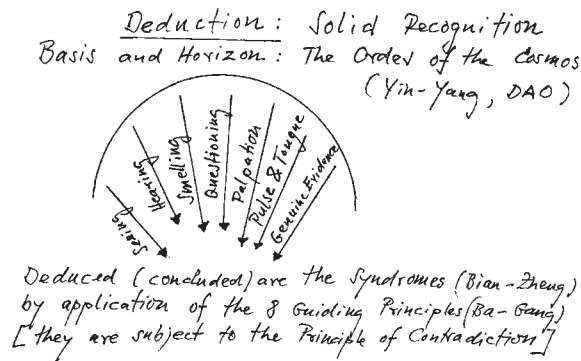 Deduction: Solid Recognition
Basis and Horizon: The Order of the Cosmos
(Yin-Yang, DAO)
Seeing
Hearing
Smelling
Questioning
Palpation
Pulse & Tongue
Genuine Evidence
Deduced (concluded) are the Syndromes (Bian-Zheng)
by application of the 8 Guiding Principles (Ba-Gang)
[they are subject to the Principle of Contradiction]